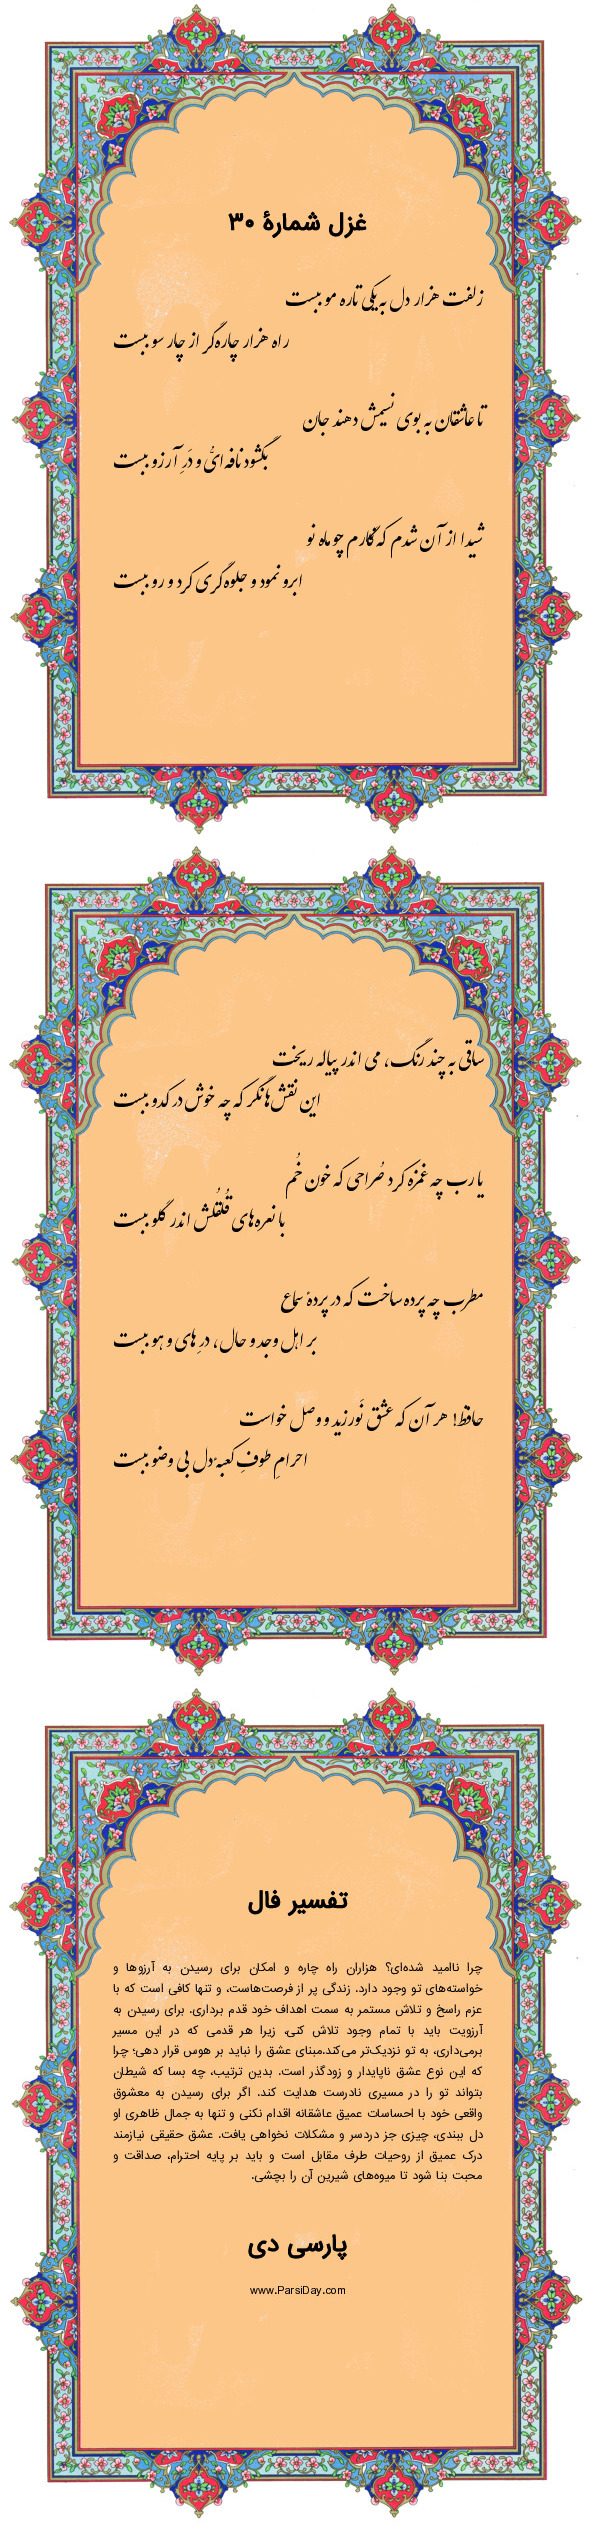 غزل شمارهٔ ۳۰
زلفت هزار دل به یکی تاره مو ببست
راه هزار چاره‌گر از چار سو ببست
تا عاشقان به بوی نسیمش دهند جان
بگشود نافه‌ایُّ و دَرِ آرزو ببست
شیدا از آن شدم که نگارم چو ماه نو
ابرو نمود و جلوه‌گری کرد و رو ببست
ساقی به چند رنگ، می اندر پیاله ریخت
این نقش‌ها نگر که چه خوش در کدو ببست
یا رب چه غمزه کرد صُراحی که خون خُم
با نعره‌های قُلقُلش اندر گلو ببست
مطرب چه پرده ساخت که در پردهٔ سماع
بر اهل وجد و حال، درِ های و هو ببست
حافظ! هر آن که عشق نَورزید و وصل خواست
احرامِ طوفِ کعبهٔ دل بی وضو ببست
تفسیر فال
چرا ناامید شده‌ای؟ هزاران راه چاره و امکان برای رسیدن به آرزوها و
خواسته‌های تو وجود دارد. زندگی پر از فرصت‌هاست، و تنها کافی است که با
عزم راسخ و تلاش مستمر به سمت اهداف خود قدم برداری. برای رسیدن به
آرزویت باید با تمام وجود تلاش کنی، زیرا هر قدمی که در این مسیر
برمی‌داری، به تو نزدیک‌تر می‌کند.مبنای عشق را نباید بر هوس قرار دهی؛ چرا
که این نوع عشق ناپایدار و زودگذر است. بدین ترتیب، چه بسا که شیطان
بتواند تو را در مسیری نادرست هدایت کند. اگر برای رسیدن به معشوق
واقعی خود با احساسات عمیق عاشقانه اقدام نکنی و تنها به جمال ظاهری او
دل ببندی، چیزی جز دردسر و مشکلات نخواهی یافت. عشق حقیقی نیازمند
درک عمیق از روحیات طرف مقابل است و باید بر پایه احترام، صداقت و
محبت بنا شود تا میوه‌های شیرین آن را بچشی.
پارسی دی
www.ParsiDay.com